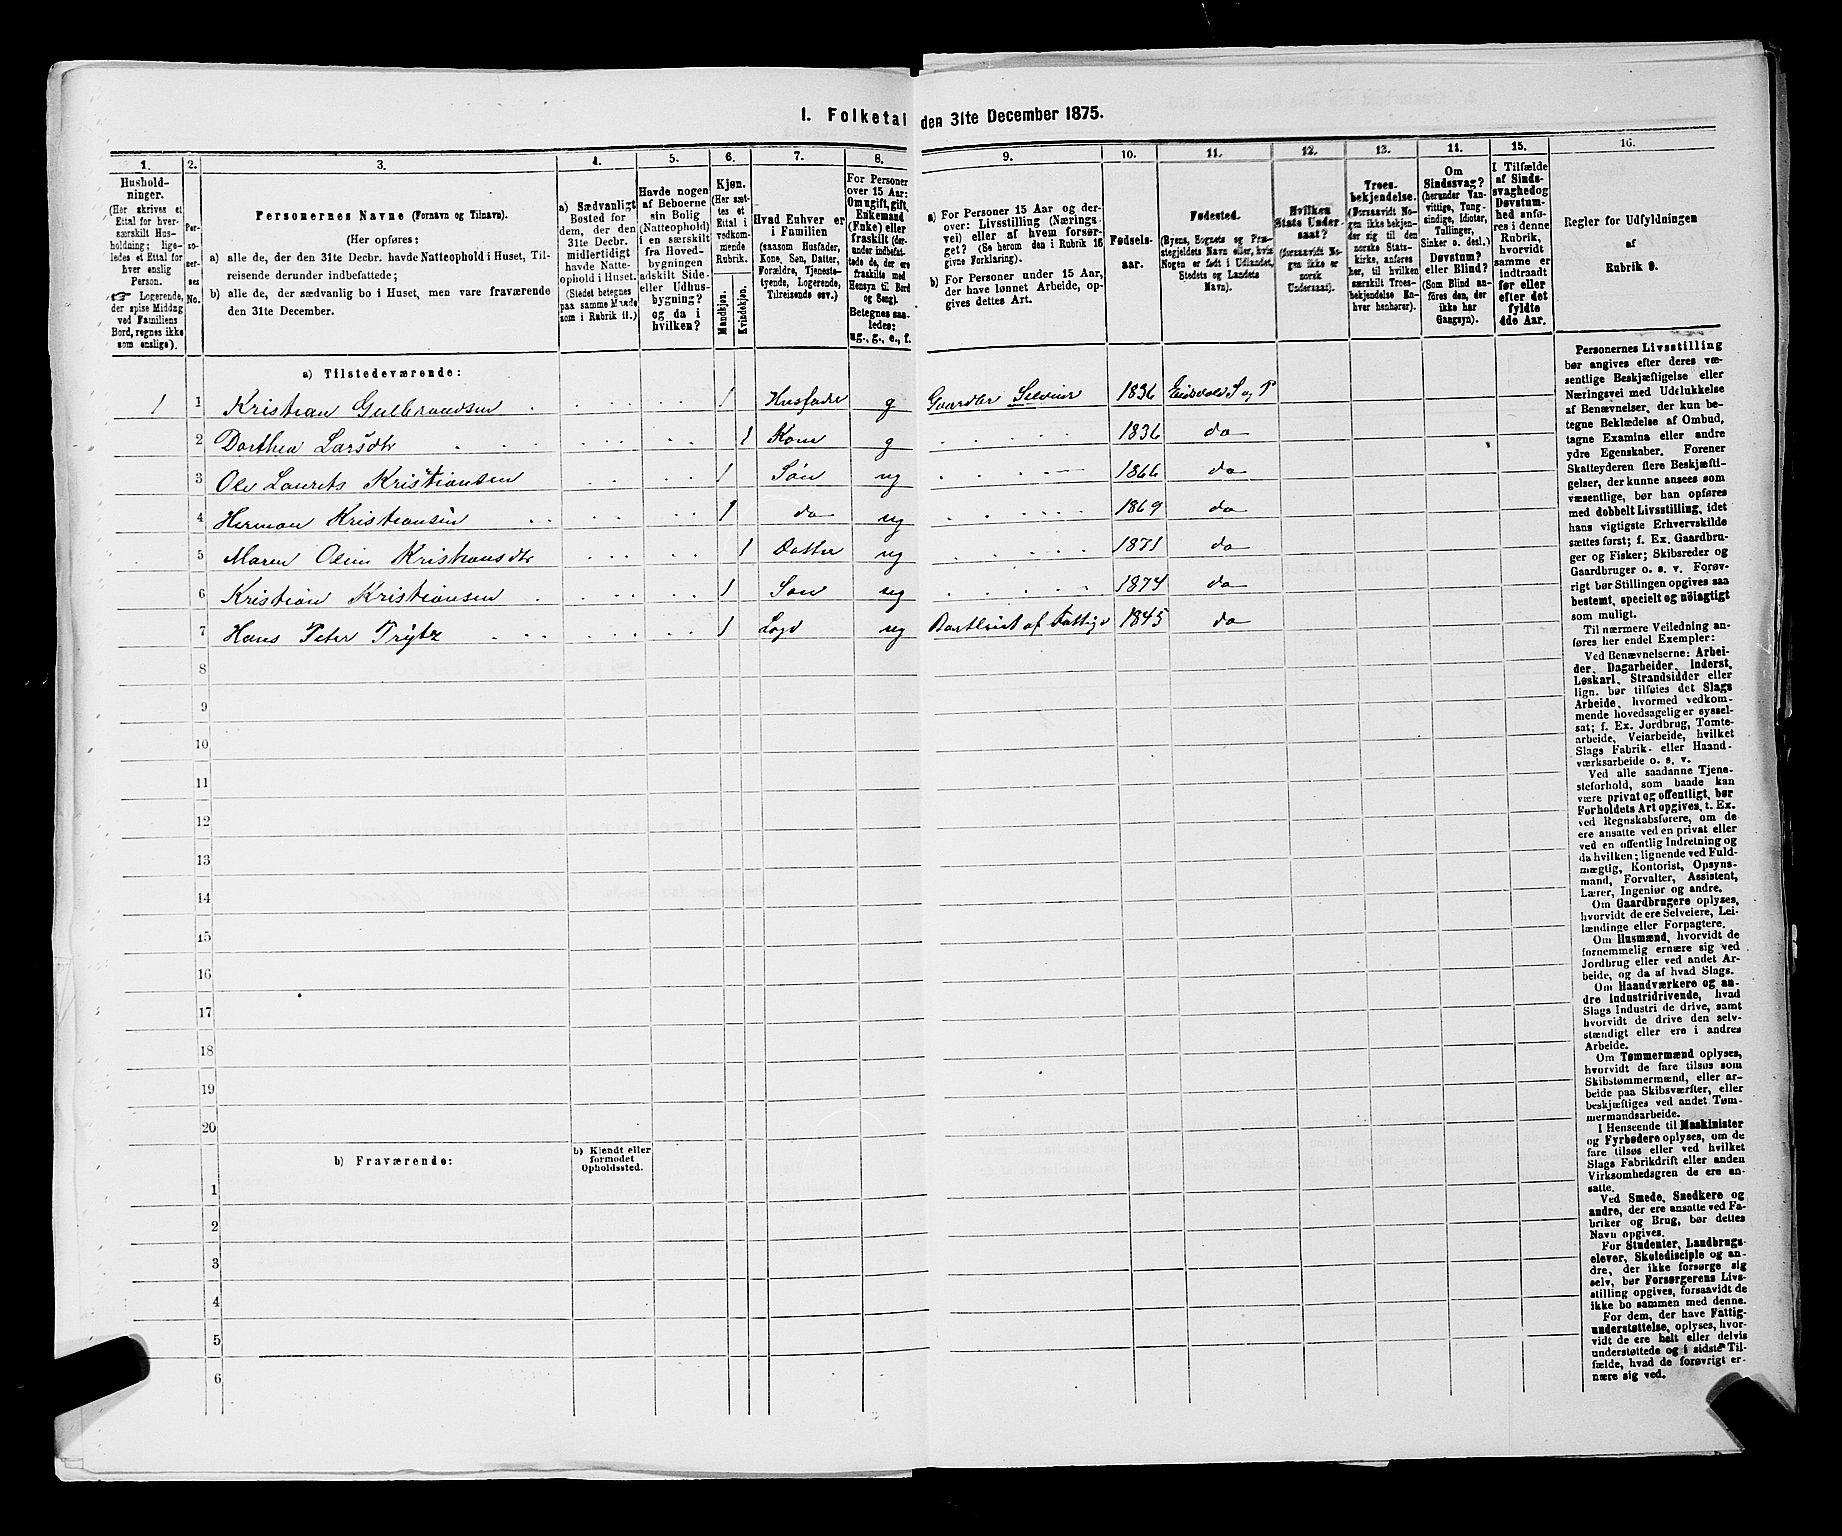 I. Folketal den 31te December 1875.
1.
2.
3.
4.
5.
6.
7.
8.
9.
10.
11.
12.
13.
14.
15.
16.
Hushold-
ninger.
(Her skrives et
Ettal for hver-
særskilt Hus-
holdning; lige-
ledes et Ettal for
hver enslig
Person.
☞ Logerende,
der spise Middag
ved Familiens
Bord, regnes ikke
som enslige).
Per-
so-
ner-
nes
No.
Personernes Navne (Fornavn og Tilnavn).
(Her opføres:
a) alle de, der den 31te Decbr. havde Natteophold i Huset, Til-
reisende derunder indbefattede;
b) alle de, der sædvanlig bo i Huset, men vare fraværende
den 31te December.
a) Sædvanligt
Bosted for
dem, der den
31te Decbr.
midlertidigt
havde Natte-
ophold i Huset.
(Stedet betegnes
paa samme Maade
som i Rubrik 11.)
Havde nogen
af Beboerne
sin Bolig
(Natteophold)
i en særskilt
fra Hoved-
bygningen
adskilt Side-
eller Udhus-
bygning?
og da i
hvilken?
Kjøn.
(Her sæt-
tes et
Ettal i
vedkom-
mende
Rubrik.
Mandkjøn.
Kvindekjøn.
Hvad Enhver er
i Familien
(saasom Husfader,
Kone, Søn, Datter,
Forældre, Tjeneste-
tyende, Logerende,
Tilreisende osv.)
For Personer
over 15 Aar:
Om ugift, gift,
Enkemand
(Enke) eller
fraskilt (der-
under indbefat-
tede de, der ere
fraskilte med
Hensyn til Bord
og Seng).
Betegnes saa-
ledes:
ug., g., e., f.
a) For Personer 15 Aar og der-
over: Livsstilling (Nærings-
vei) eller af hvem forsør-
get? (Se herom den i Rubrik 16
givne Forklaring).
b) For Personer under 15 Aar,
der have lønnet Arbeide, op-
gives dettes Art.
Fødsels-
aar.
Fødested.
(Byens, Sognets og Præ-
stegjeldets Navn eller, hvis
Nogen er født i Udlandet,
Stedets og Landets
Navn).
Hvilken
Stats Under-
saat?
(forsaavidt No-
gen ikke er
norsk
Undersaat).
Troes-
bekjendelse.
(Forsaavidt No-
gen ikke bekjen-
der sig til den
norske Stats-
kirke, anføres
her, til hvilken
særskilt Troes-
bekjendelse En-
hver henhører).
Om
Sindssvag?
(herunder Van-
vittige, Tung-
sindige, Idioter,
Tullinger,
Sinker o. desl.)
Døvstum?
eller Blind?
(Som Blind an-
føres den, der
ikke har
Gangsyn).
I Tilfælde
af Sinds-
svaghed og
Døvstum-
hed anfø-
res i denne
Rubrik,
hvorvidt
samme er
indtraadt
før eller
efter det
fyldte
4de Aar.
Regler for Udfyldningen
af
Rubrik 9.
a) Tilstedeværende:
1 1 Kristian Gulbrandsen 1 Husfader g Gaardbr Selveier 1836 Eidsvold S og P
2 Dorthea Larsdtr 1 Kone g 1836 do
3 Ole Laurits Kristiansen 1 Søn ug 1866 do
4 Herman Kristiansen 1 do ug 1869 do
5 Maren Oline Kristiansdtr 1 Datter ug 1871 do
6 Kristian Kristiansen 1 Søn ug 1874 do
7 Hans Peter Frytz 1 Logd ug af Fattigv 1845 do
8
9
10
11
12
13
14
15
16
17
18
19
20
b) Fraværende:
b) Kjendt eller
formodet
Opholdssted.
1
2
3
4
5
6
Personernes Livsstilling
bør angives efter deres væ-
sentlige Beskjæftigelse eller
Næringsvei med Udelukkelse
af Benævnelser, der kun be-
tegne Beklædelse af Ombud,
tagne Examina eller andre
ydre Egenskaber. Forener
Skatteyderen flere Beskjæfti-
gelser, der kunne ansees som
væsentlige, bør han opføres
med dobbelt Livsstilling, idet
hans vigtigste Erhvervskilde
sættes først; f. Ex. Gaardbru-
ger og Fisker; Skibsreder og
Gaardbruger o. s. v. Forøv-
rigt bør Stillingen opgives saa
bestemt, specielt og nøiagtigt
som muligt.
Til nærmere Veiledning an-
føres her endel Exempler:
Ved Benævnelserne: Arbei-
der, Dagarbeider, Inderst,
Løskarl, Strandsidder eller
lign. bør tilføies det Slags
Arbeide, hvormed vedkom-
mende hovedsagelig er syssel-
sat; f. Ex. Jordbrug, Tomte-
arbeide, Veiarbeide, hvilket
Slags Fabrik- eller Haand-
værksarbeide o. s. v.
Ved alle saadanne Tjene-
steforhold, som baade kan
være privat og offentligt, bør
Forholdets Art opgives, t. Ex.
ved Regnskabsførere, om de
ere ansatte ved en privat eller
ved en offentlig Indretning og
da hvilken; lignende ved Fuld-
mægtig, Kontorist, Opsyns-
mand, Forvalter, Assistent,
Lærer, Ingeniør og andre.
Om Gaardbrugere oplyses,
hvorvidt de ere Selveiere, Lei-
lændinge eller Forpagtere.
Om Husmænd, hvorvidt de
fornemmelig ernære sig ved
Jordbrug eller ved andet Ar-
beide, og da af hvad Slags.
Om Haandværkere og an-
dre Industridrivende, hvad
Slags Industri de drive, samt
hvorvidt de drive den selv-
stændigt eller ere i andres
Arbeide.
Om Tømmermænd oplyses,
hvorvidt de fare tilsøs som
Skibstømmermænd, eller ar-
beide paa Skibsværfter, eller
beskjæftiges ved andet Tøm-
mermandsarbeide.
I Henseende til Maskinister
og Fyrbødere oplyses, om de
fare tilsøs eller ved hvilket
Slags Fabrikdrift eller anden
Virksomhedsgren de ere an-
satte.
Ved Smede, Snedkere og
andre, der ere ansatte ved Fa-
briker og Brug, bør dettes
Navn opgives.
For Studenter, Landbrugs-
elever, Skoledisciple og an-
dre, der ikke forsørge sig
selv, bør Forsørgerens Livs-
stilling opgives, forsaavidt de
ikke bo sammen med denne.
For dem, der have Fattig-
understøttelse, oplyses, hvor-
vidt de ere helt eller delvis
understøttede og i sidste Til-
fælde, hvad de forøvrigt er-
nære sig ved.